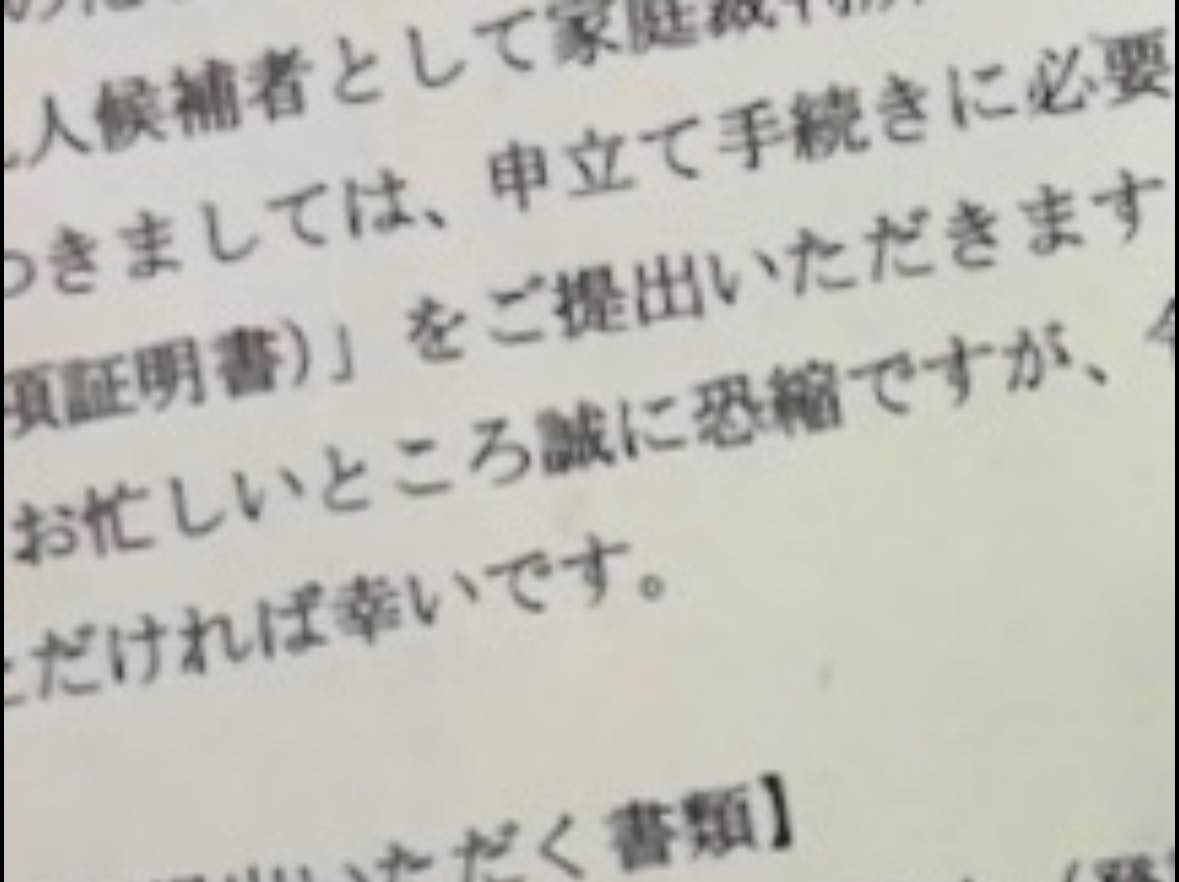 人候補者として家庭裁判所
つきましては、申立て手続きに必要
項証明書)」をご提出いただきます
お忙しいところ誠に恐縮ですが、
ただければ幸いです。
いただく書類】